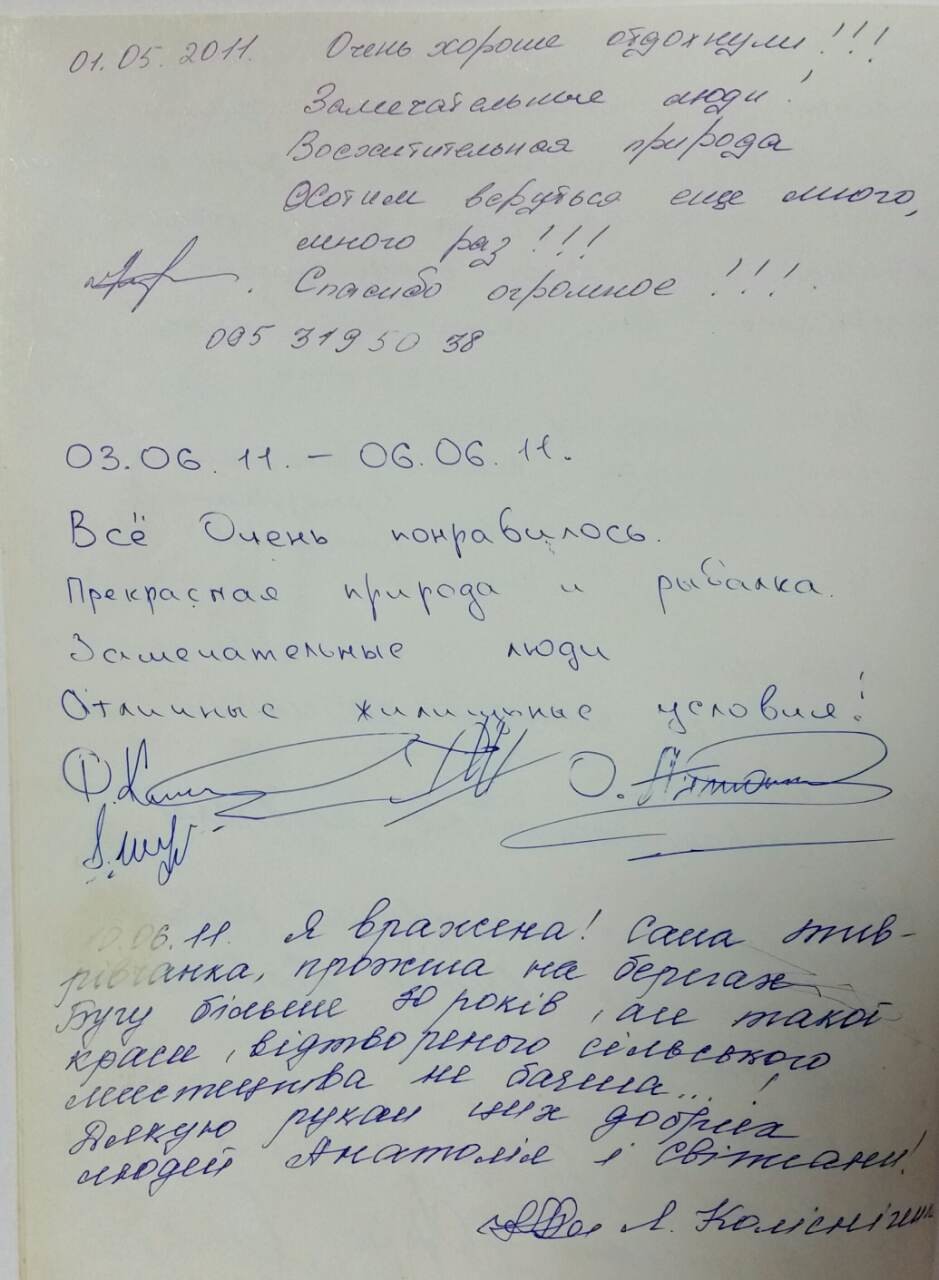 01.05.2011. Очень хорошо отдохнули!!!
Замечательные люди!
Восхитительная природа
Хотим веруться еще много,
много раз!!!
Спасибо огромное!!!
095 319 50 38
03.06.11. – 06.06.11.
Всё Очень понравилось.
Прекрасная природа и рыбалка.
Замечательные люди
Отличные жилищные условия!
.06.11. Я вражена! Сама тив-
рівчанка, прожила на берегах
Бугу більше 70 років, але такої
краси, відтвореного сільського
мистецтва не бачила...!
Дякую рукам цих добрих
людей Анатолія і Світлани!
Л. Колісніченко